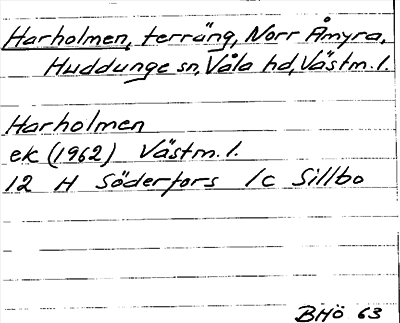 Harholmen, terräng, Norr Åmyra,
Huddunge sn, Våla hd, Västm. l.
Harholmen
ek (1962) Västm. l.
12 H Söderfors 1c Sillbo
BHö 63